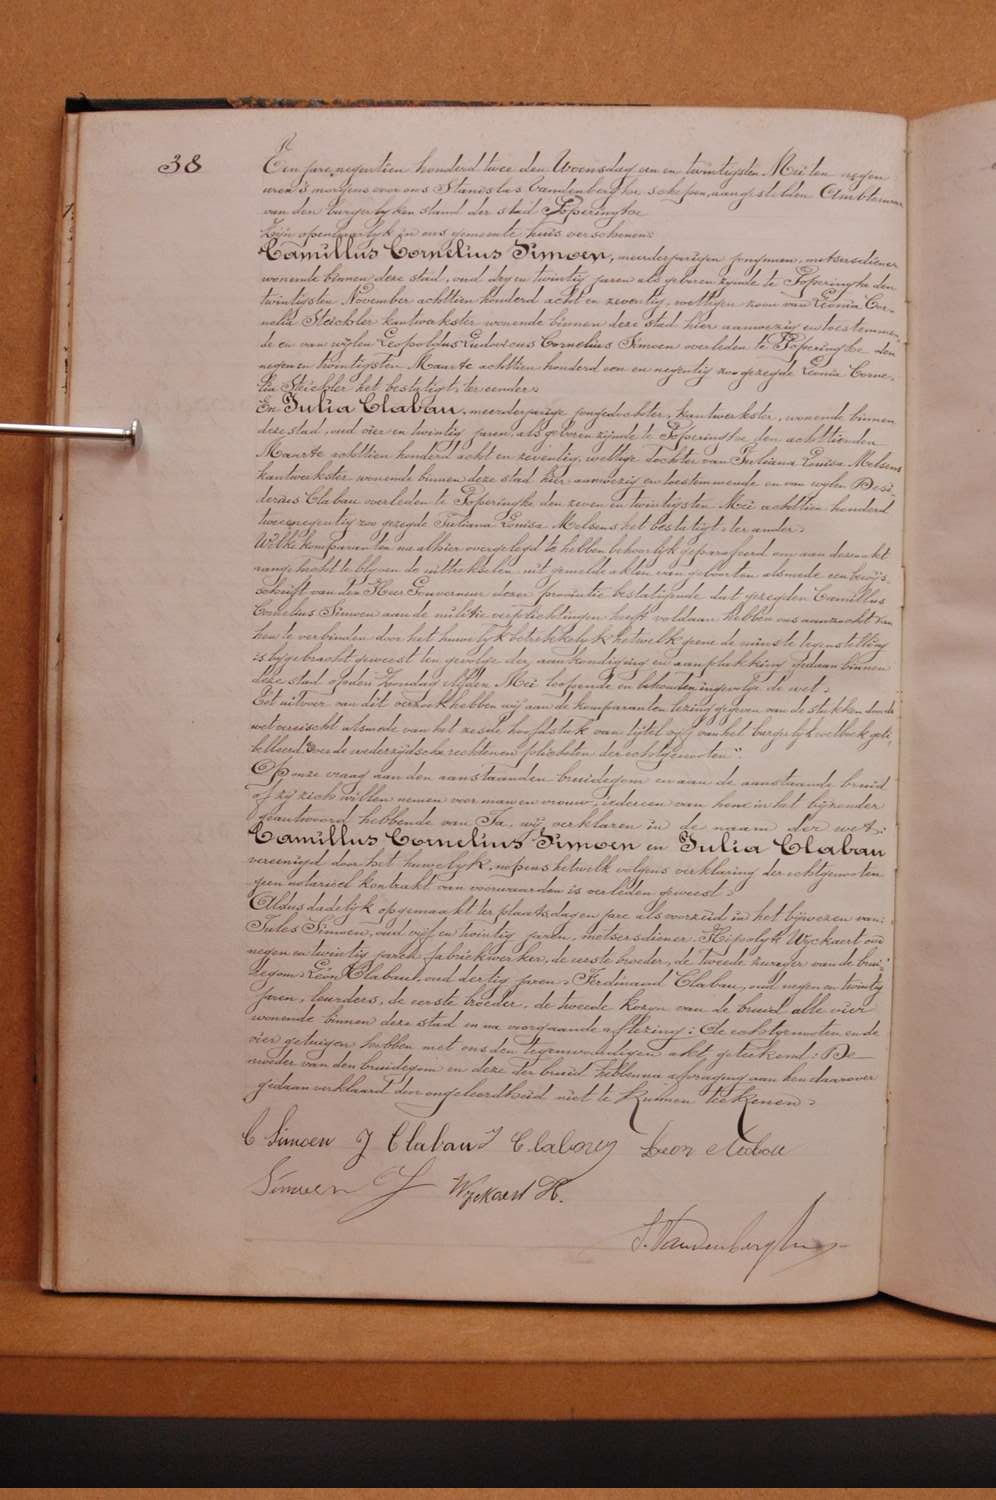 38
Ten jare negentien honderd twee den Woensdag een en twintigsten Mei ten negen
uren 's morgens voor ons Stanislas Vandenberghe schepen, aangestelden Ambtenaar
van den burgerlyken stand der stad Poperinghe
zijn openbaarlyk in ons gemeente huis verschenen:
Camillus Cornelius Simoen, meerderjarigen jongman, metsersdiener
wonende binnen deze stad, oud dry en twintig jaren als geboren zynde te Poperinghe den
twintigsten November achttien honderd acht en zeventig, wettigen zoon van Leonia Cor-
nelia Steichler kantwerkster wonende binnen deze stad hier aanwezig en toestemmen-
de en van wylen Leopoldus Ludovicus Cornelius Simoen overleden te Poperinghe den
negen en twintigsten Maarte achttien honderd een en negentig zoo gezegde Leonia Corne-
lia Steichler het bestatigt, ter eender:
En Julia Clabau, meerderjarige jongedochter, kantwerkster, wonende binnen
deze stad, oud vier en twintig jaren, als geboren zijnde te Poperinghe den achttienden
Maarte achttien honderd acht en zeventig, wettige dochter van Juliana Louisa Melsens
kantwerkster wonende binnen deze stad hier aanwezig en toestemmende en van wylen Desi-
derius Clabau overleden te Poperinghe den zeven en twintigsten Mei achttien honderd
twee en negentig zoo gezegde Juliana Louisa Melsens het bestatigt, ter ander.
Welke komparanten na alhier overgelegd te hebben behoorlyk geparafeerd om aan dezen akt
aangehecht te blyven de uittrekselen uit gemelde akten van geboorten alsmede een bewijs-
schrift van den Heer Gouverneur dezer provintie bestatigende dat gezegden Camillus
Cornelius Simoen aan de militie verplichtingen heeft voldaan hebben ons aanzocht van
hen te verbinden door het huwelyk betrekkelyk hetwelk geene de minste tegenstelling
is bygebracht geweest ten gevolge der aankondiging en aanplakking gedaan binnen
deze stad op den Zondag elfden Mei loopende en behouden ingevolge de wet.
Tot uitvoer van dit verzoek hebben wij aan de komparanten lezing gegeven van de stukken door de
wet vereischt alsmede van het zesde hoofdstuk van tijtel vyf van het burgerlyk wetboek geti-
telleerd: Over de wederzijdsche rechten en plichten der echtgenooten".
Op onze vraag aan den aanstaanden bruidegom en aan de aanstaande bruid
of zij zich willen nemen voor man en vrouw, iedereen van hen in het bijzonder
geantwoord hebbende van Ja, wij verklaren in de naam der wet:
Camillus Cornelius Simoen en Julia Clabau
vereenigd door het huwelyk, nopens hetwelk volgens verklaring der echtgenooten
geen notarieel kontrakt van voorwaarden is verleden geweest.
Aldus dadelijk opgemaakt ter plaats, dag en jare als voorzeid in het bijwezen van:
Jules Simoen, oud vijf en twintig jaren, metsersdiener, Hipolyk Wyckaert oud
negen en twintig jaren fabriekwerker, de eerste broeder, de tweede zwager van de brui-
degom: Léon Clabau, oud dertig jaren: Ferdinand Clabau, oud negen en twintig
jaren, leurders, de eerste broeder, de tweede kozyn van de bruid alle vier
wonende binnen deze stad en na voorgaande aflezing: de echtgenooten en de
vier getuigen hebben met ons den tegenwoordigen akt geteekend: De
moeder van den bruidegom en deze der bruid hebben na afvraging aan hen daarover
gedaan verklaard door ongeleerdheid niet te kunnen teekenen.
C Simoen J Clabau Leon Clabau
Simoen J Wyckaert H.
S. Vandenberghe